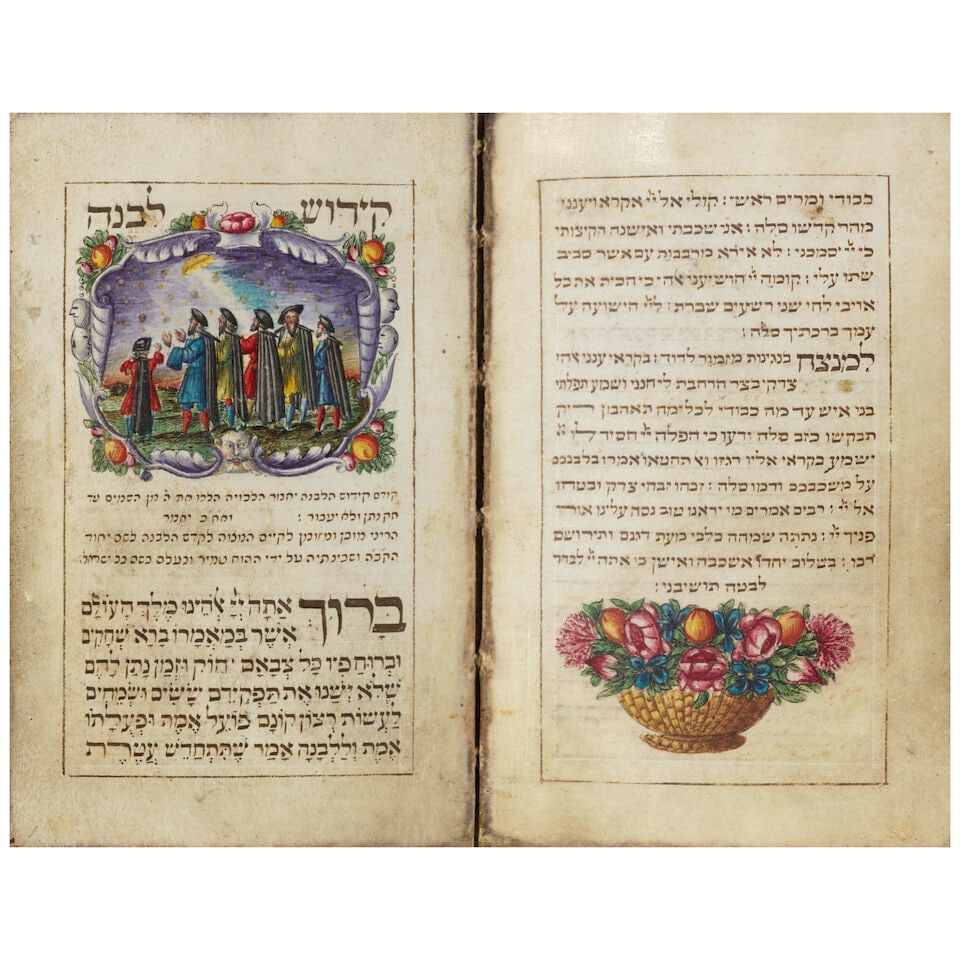 כבודי ומרים ראשי : קולי אל יי אקרא ויענני
מהר קדשו סלה : אני שכבתי ואישנה הקיצותי
כי יי יסמכני : לא אירא מרבבות עם אשר סביב
שתו עלי : קומה יי הושיעני אהי כי הכית את כל
אויבי לחי שני רשעים שברת : ליי הישועה על
עמך ברכתיך סלה :
למנצח בנגינות מזמור לדוד : בקראי ענני אהי
צדקי בצר הרחבת לי חנני ושמע תפלתי
בני איש עד מה כבודי לכלימה תאהבון ריק
תבקשו כזב סלה ודעו כי הפלה יי חסיד לו יי
ישמע בקראי אליו רגזו ואל תחטאו אמרו בלבבכם
על משכבכם ודמו סלה : זבחו זבחי צדק ובטחו
אל יי : רבים אמרים מי יראנו טוב נסה עלינו אור
פניך יי : נתתה שמחה בלבי מעת דגנם ותירושם
רבו : בשלום יחדו אשכבה ואישן כי אתה יי לבדד
לבטח תושיבני :
קידוש לבנה
קודם קידוש הלבנה יאמר הללויה הללו את ה' מן השמים עד
חק נתן ולא יעבור : ואח"כ יאמר
הריני מוכן ומזומן לקיים המצוה לקדש הלבנה לשם יחוד
הקב"ה ושכינתיה על ידי ההוא טמיר ונעלם בשם כל ישראל :
בָּרוּךְ אַתָּה יְיָ אֱהֵינוּ מֶלֶךְ הָעוֹלָם
אֲשֶׁר בְּמַאֲמָרוֹ בָּרָא שְׁחָקִים
וּבְרוּחַ פִּיו כָּל צְבָאָם יחוֹק וּזְמַן נָתַן לָהֶם
שֶׁלֹּא יְשַׁנּוּ אֶת תַּפְקִידָם שָׂשִׂים וּשְׂמֵחִים
לַעֲשׂוֹת רְצוֹן קוֹנָם פּוֹעֵל אֱמֶת וּפְעֻלָּתוֹ
אֱמֶת וְלַלְּבָנָה אָמַר שֶׁתִּתְחַדֵּשׁ עֲטֶרֶת